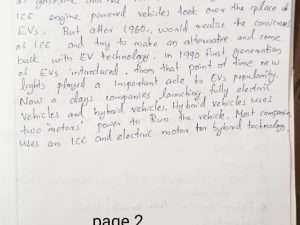 of gasoline and the
ICC engine powered vehicles took over the place of
EVs. But after 1960, would realise the consciences
of ICC and try to make an alternative and come
back with EV technology. In 1990 first generation
of EVs introduced. from that point of time new
lights played a important role to EVs popularity.
Now a days companies launching fully electric
vehicles and hybrid vehicles. Hybrid vehicles uses
two "motors" power to Run the vehicle. Most companies
uses an ICC and electric motor for hybrid technology.
page 2